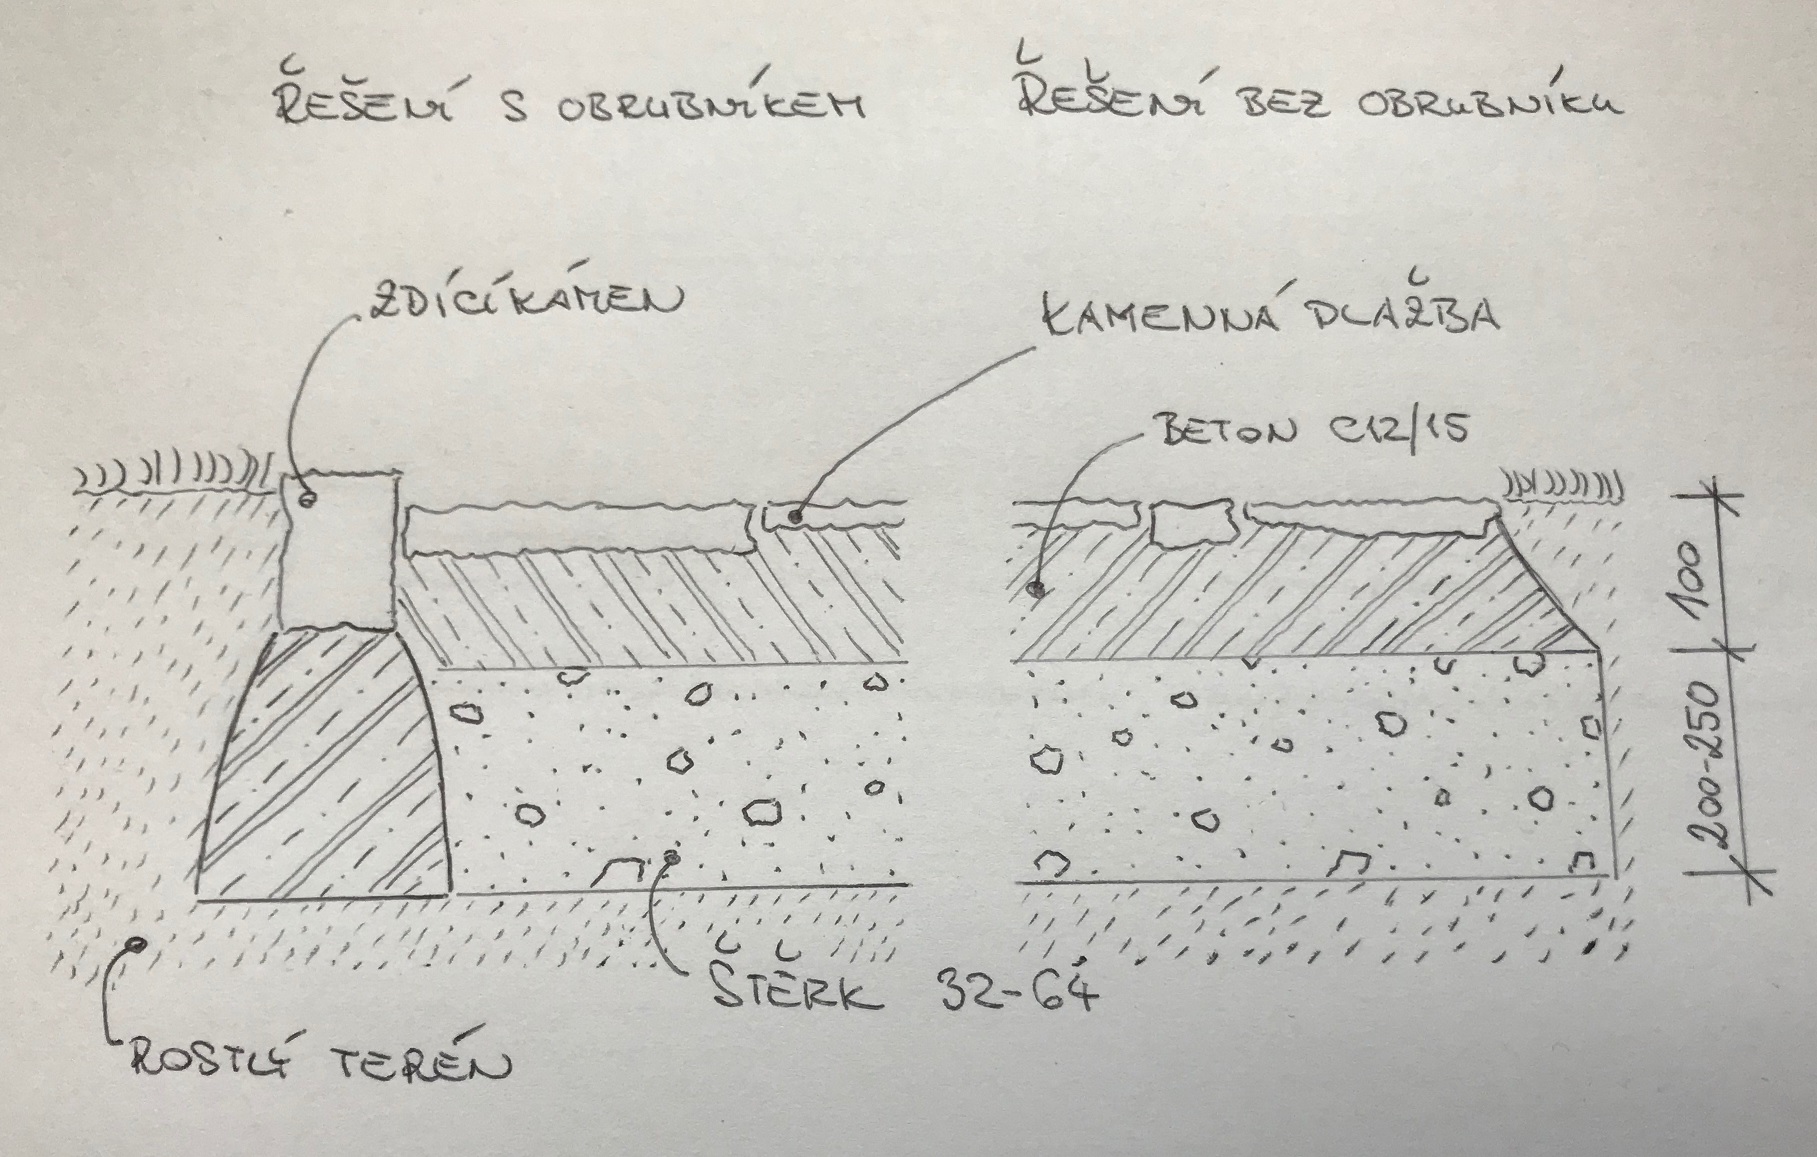 ŘEŠENÍ S OBRUBNÍKEM
ŘEŠENÍ BEZ OBRUBNÍKU
ZDÍCÍ KÁMEN
KAMENNÁ DLAŽBA
BETON C12/15
100
200-250
ŠTĚRK 32-64
ROSTLÝ TERÉN